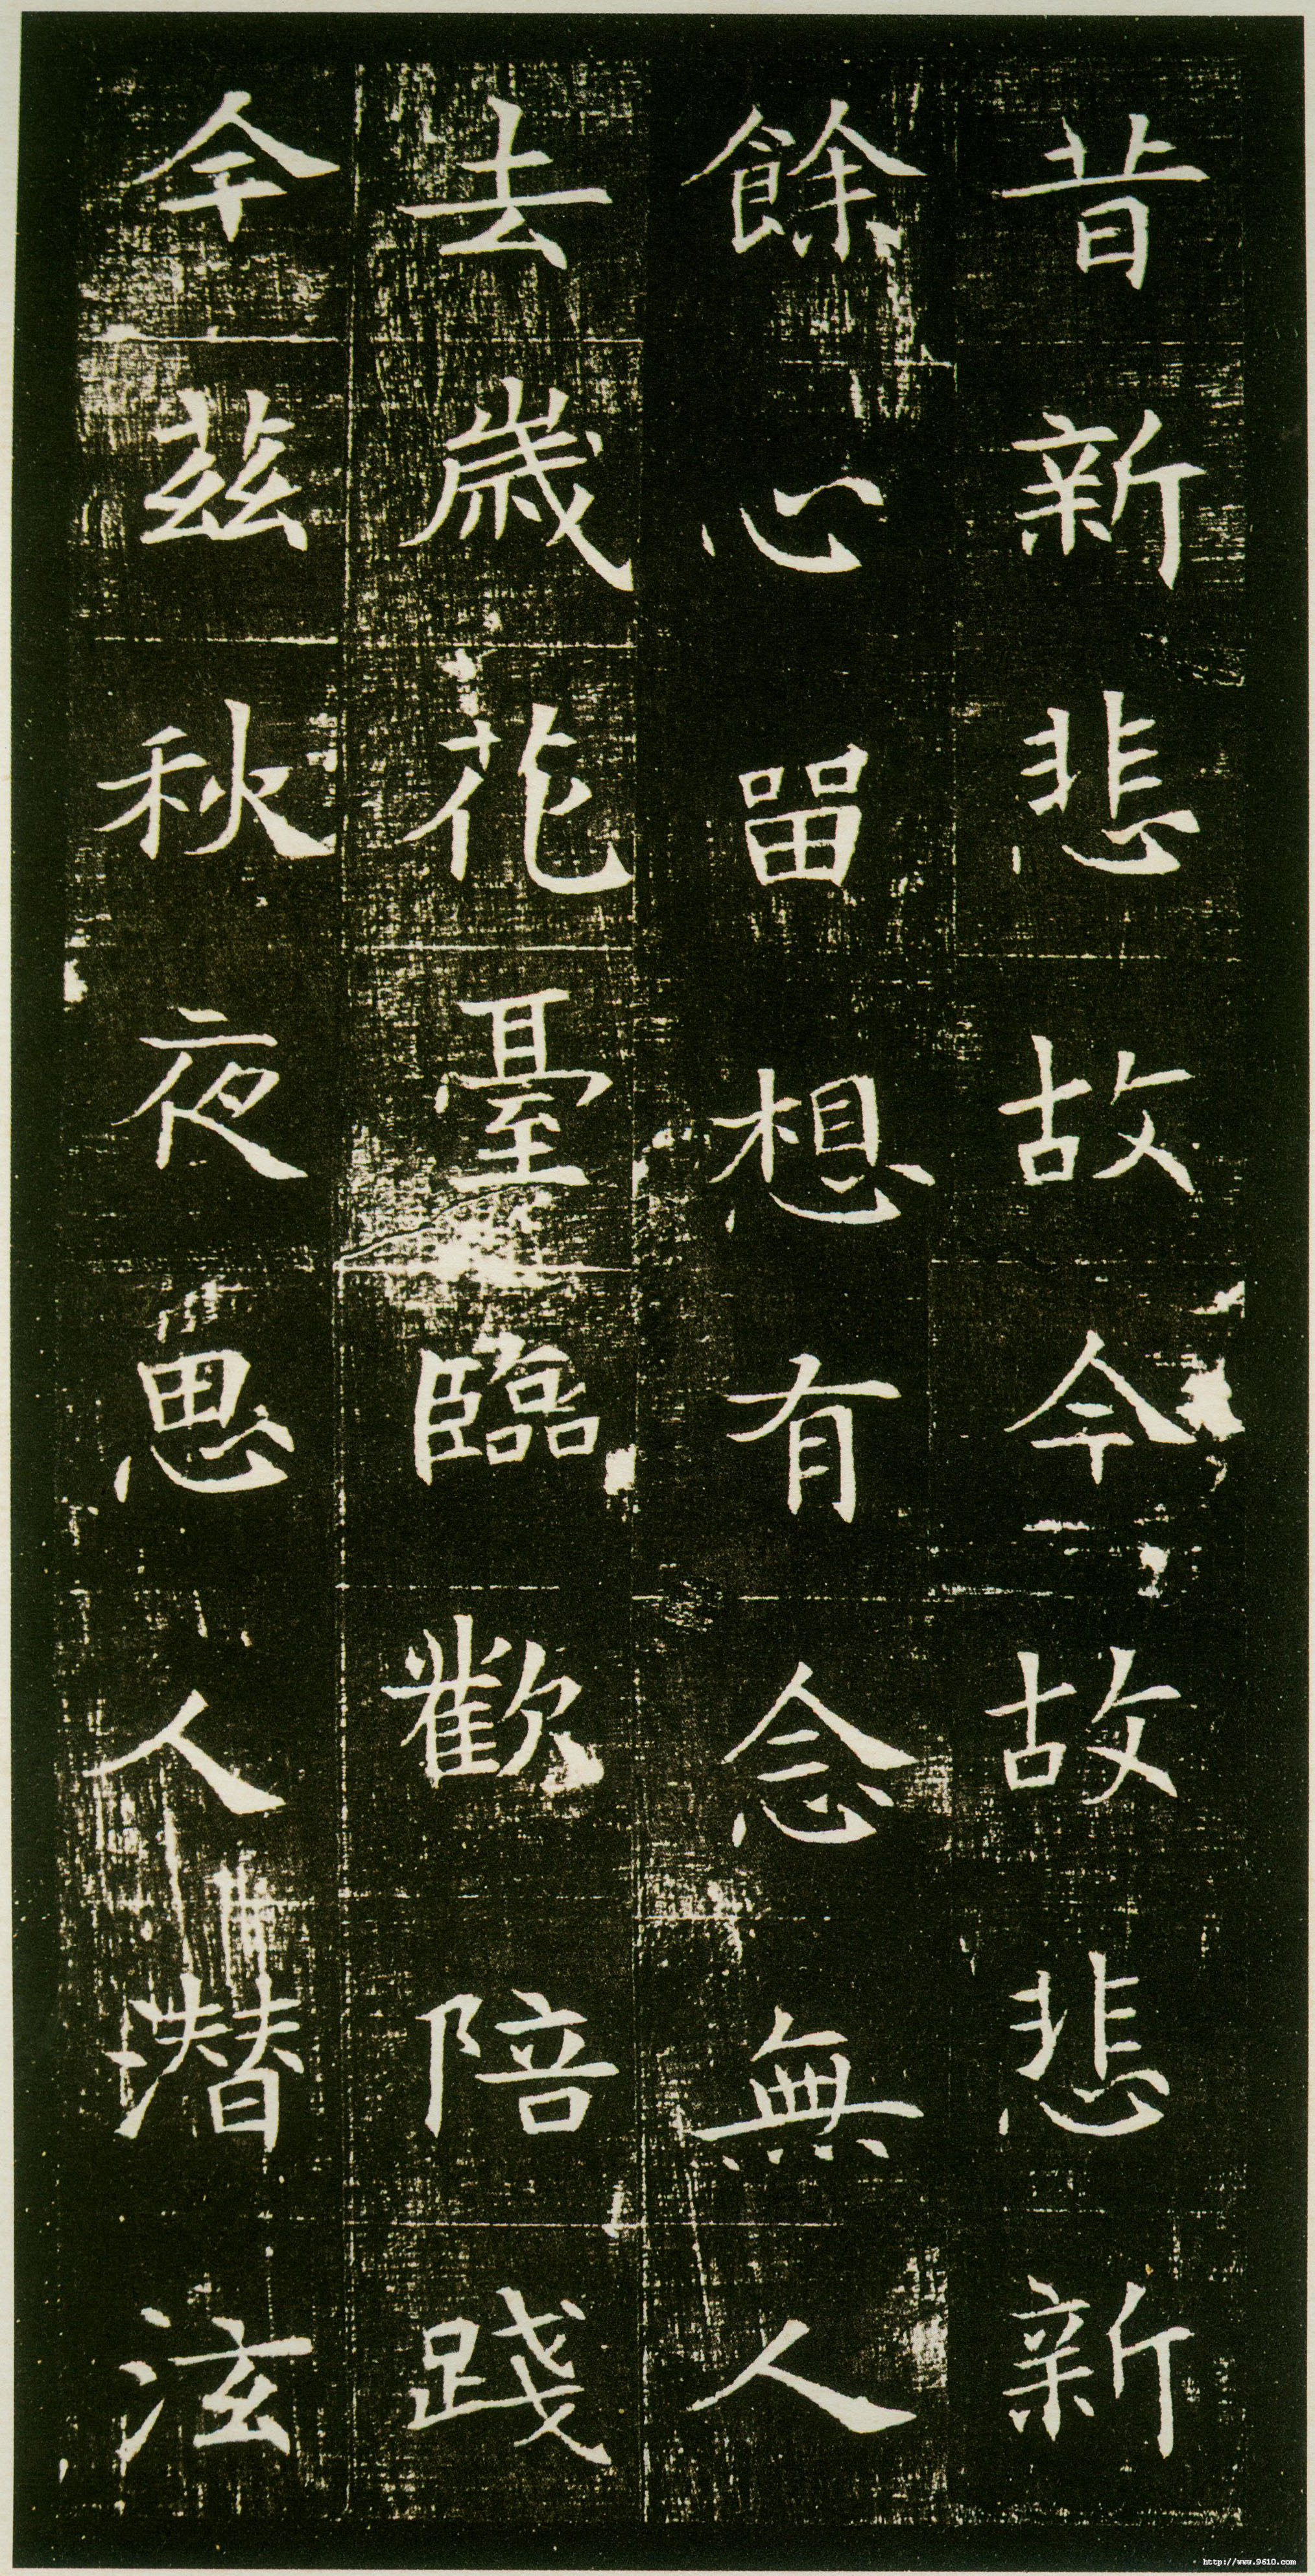 昔新悲故今故悲新
餘心留想有念無人
去歳花臺臨歡陪踐
今茲秋夜思人潜泫
http://www.9610.com